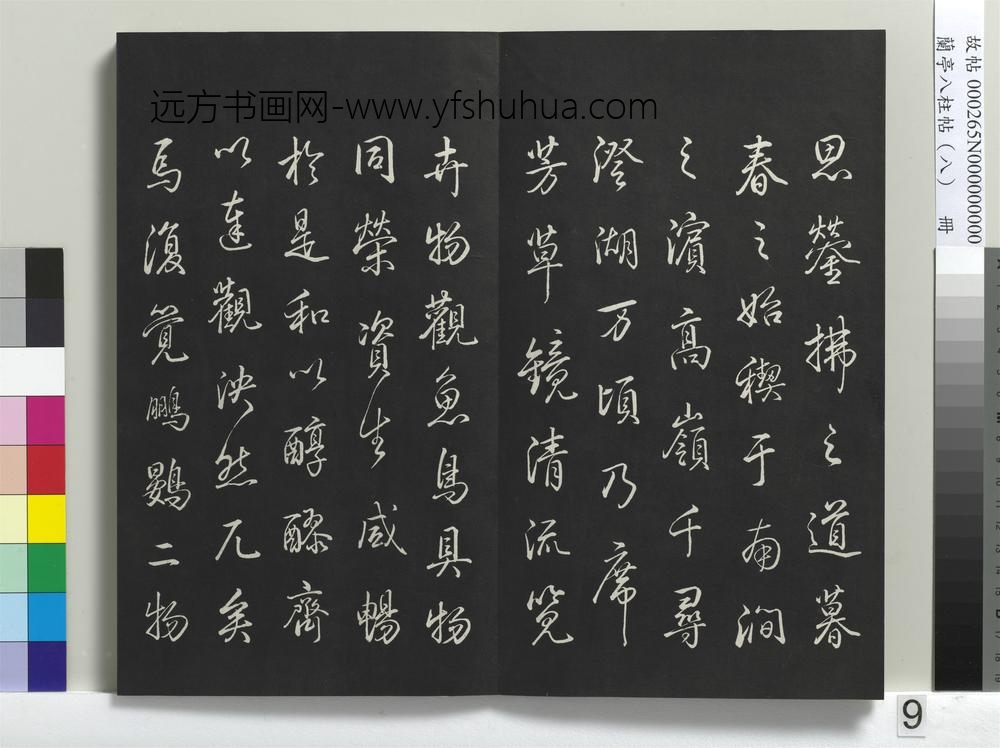 远方书画网-www.yfshuhua.com
思鎣拂之道暮
春之始禊于南澗
之濱高嶺千尋
澄湖万頃乃席
芳草鏡清流覽
卉物觀魚鳥具物
同榮資生咸暢
於是和以醇醪齊
以達觀泱然兀矣
焉復覺鵬鷃二物
故帖 000265N000000000
蘭亭八柱帖（八） 冊
9